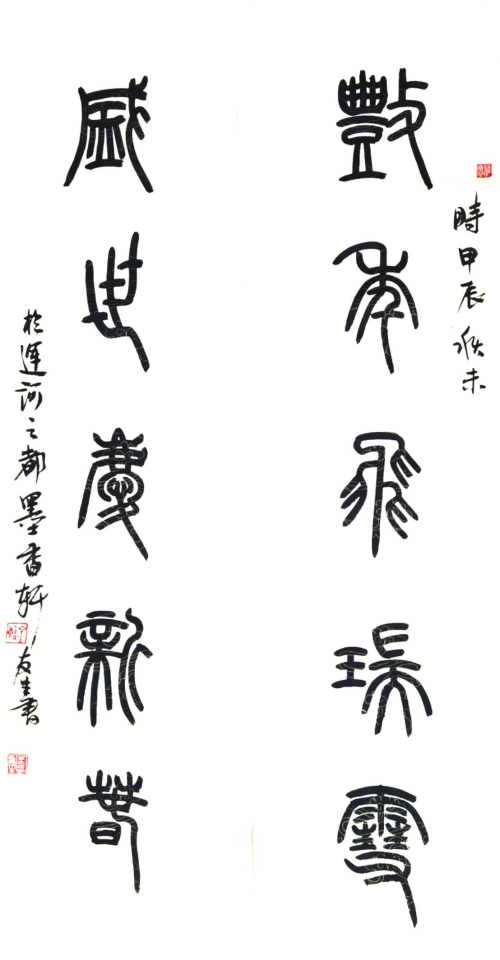 時甲辰秋末
豐年飛瑞雪
盛世慶新春
於運河之都墨香軒友生書